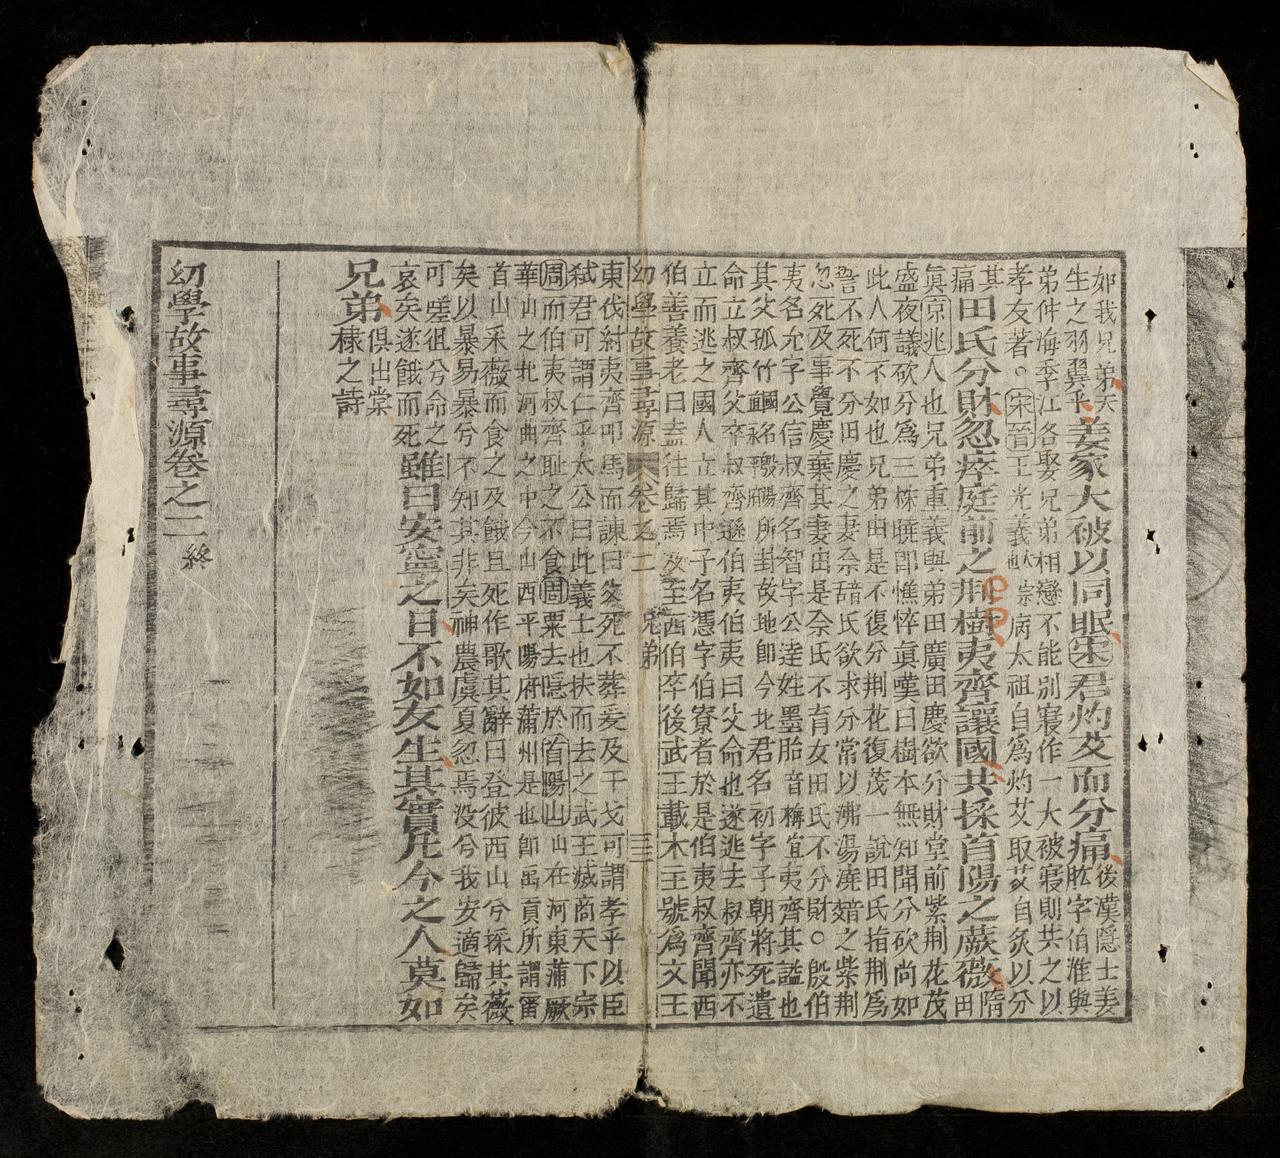 如我兄弟天
生之羽翼乎
姜家大被以同眠宋君灼艾而分痛
後漢隱士姜
肱字伯淮與
弟仲海季江各娶兄弟相戀不能别寢作一大被寢則共之以
孝友著。宋晉王光義病太祖自爲灼艾取艾自炙以分
其
痛
田氏分財忽瘁庭前之荆樹夷齊讓國共採首陽之蕨薇
隋
田
眞京兆人也兄弟重義與弟田廣田慶欲分財堂前紫荆花茂
盛夜議砍分爲三株曉即憔悴眞嘆曰樹本無知聞分砍尚如
此人何不如也兄弟由是不復分荆花復茂一說田氏指荆爲
誓不死不分田慶之妻氏欲求分常以沸湯澆之柴荆
忽死及事覺慶棄其妻由是氏不育女田氏不分財。殷伯
夷名允字公信叔齊名智字公達姓墨胎音稱宜夷齊其謚也
其父孤竹國名殷湯所封故地即今北君名初字子朝將死遺
命立叔齊父卒叔齊遜伯夷伯夷曰父命也遂逃去叔齊亦不
立而逃之國人立其中子名憑字伯寮者於是伯夷叔齊聞西
伯善養老曰盍往歸焉及至西伯卒後武王載木主號爲文王
幼學故事尋源 卷之二 兄弟 三二
東伐紂夷齊叩馬而諫曰父死不葬爰及干戈可謂孝乎以臣
弑君可謂仁乎太公曰此義士也扶而去之武王滅商天下宗
周而伯夷叔齊恥之不食周粟去隱於首陽山山在河東蒲厥
華山之北河曲之中今山西平陽府蒲州是也即禹貢所謂雷
首山采薇而食之及餓且死作歌其辭曰登彼西山兮採其薇
矣以暴易暴兮不知其非矣神農虞夏忽焉没兮我安適歸矣
可嗟徂兮命之
哀矣遂餓而死
雖曰安寧之日不如友生其實凡今之人莫如
兄弟
俱出棠
棣之詩
幼學故事尋源卷之二終